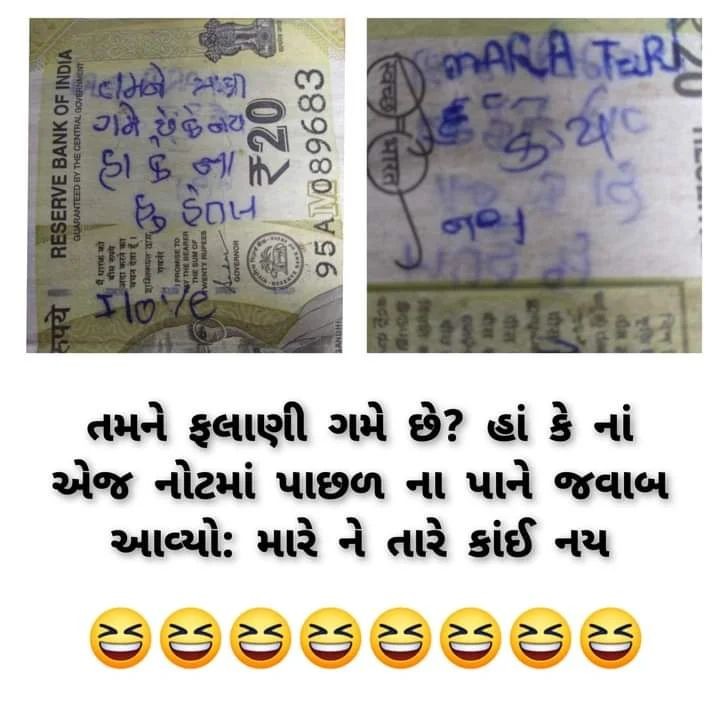 RESERVE BANK OF INDIA
GUARANTEED BY THE CENTRAL GOVERNMENT
તમને
ગમે છે કે નય
હા કે ના
હુ
I love
₹20
95A 089683
I PROMISE TO
PAY THE BEARER
THE SUM OF
TWENTY RUPEES
GOVERNOR
रुपये
MARA TARI
કય
નથ
स्वच्छ
भारत
તમને ફલાણી ગમે છે? હાં કે નાં
એજ નોટમાં પાછળ ના પાને જવાબ
આવ્યો: મારે ને તારે કાંઈ નય